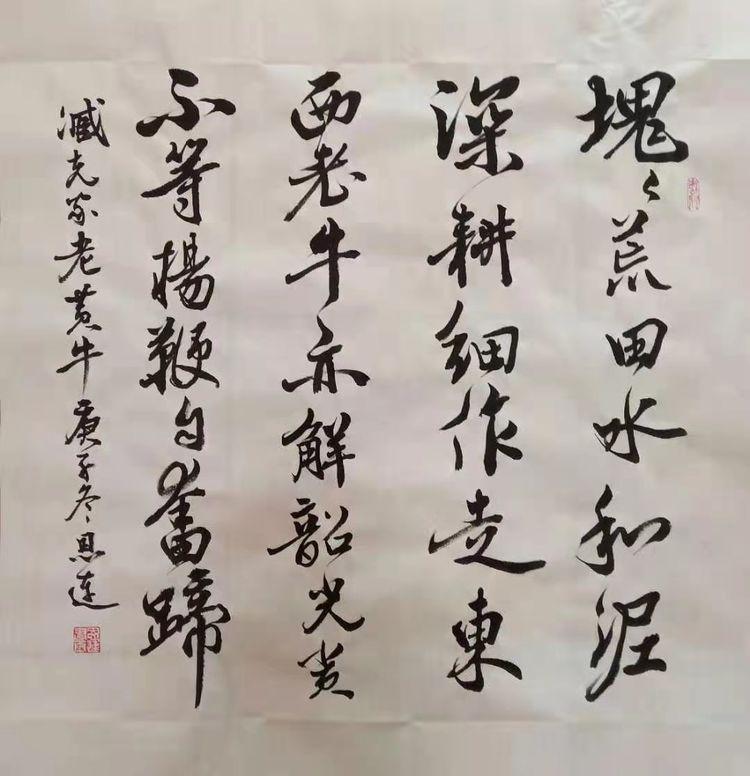 塊々荒田水和泥
深耕細作走東
西老牛亦解韶光贵
不等楊鞭自奮蹄
臧克家老黄牛庚子冬恩连